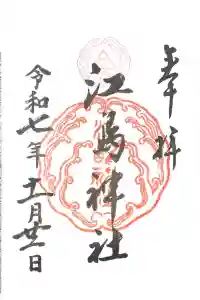 奉拝
江島神社
令和七年十一月廿二日